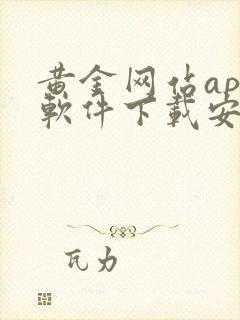 黄金网站ap
軟件下載安
瓦力